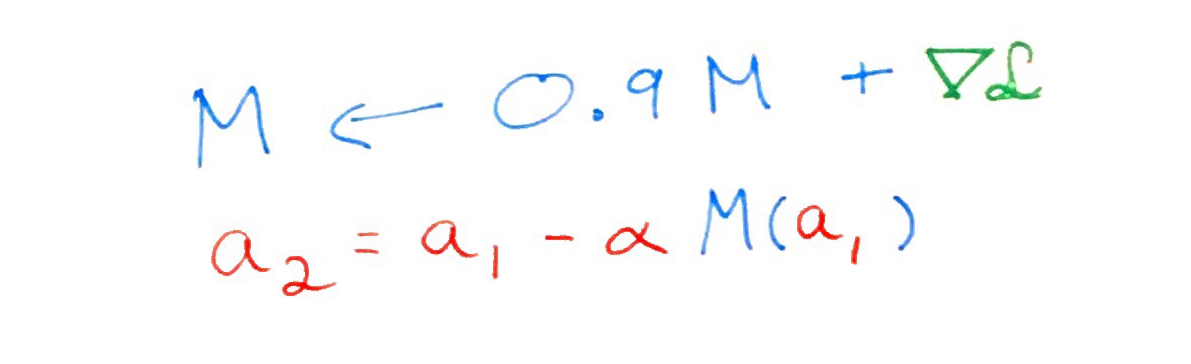 M ← 0.9 M + ∇ℒ
a₂ = a₁ - α M(a₁)